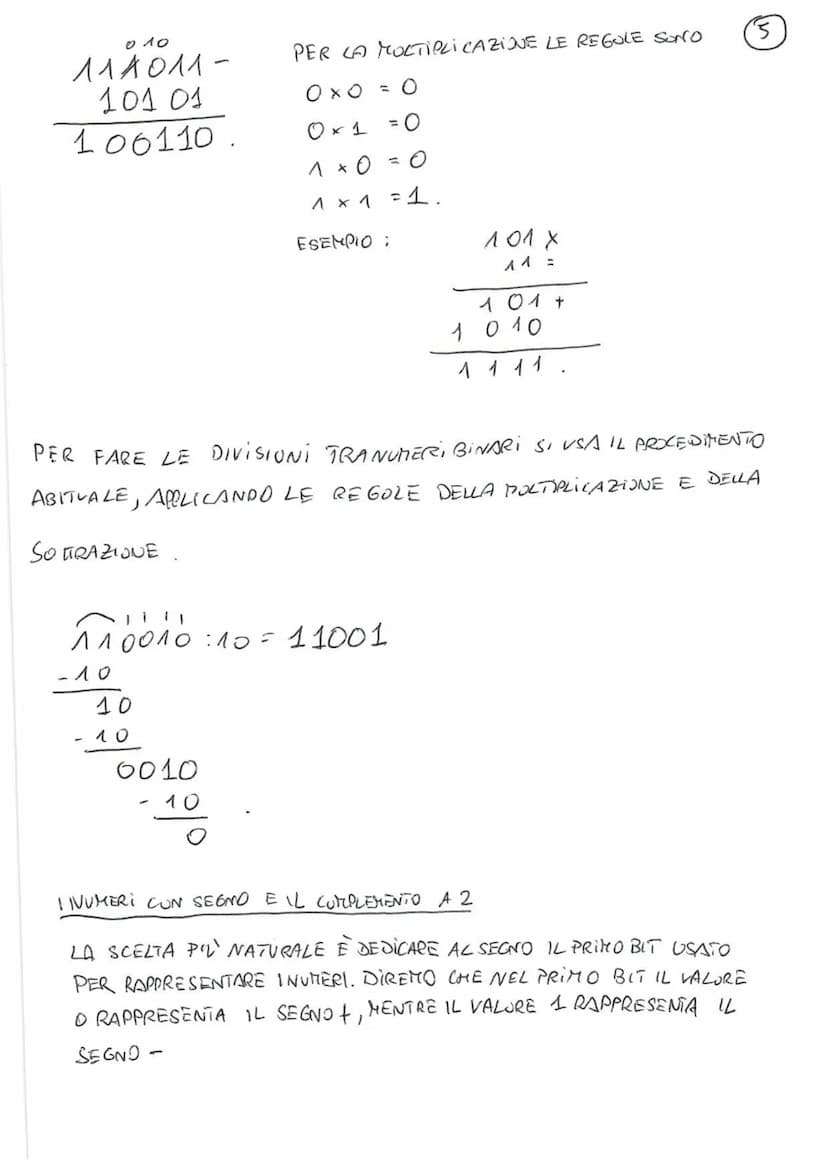 5
0 10
111011-
10101
100110.
PER LA MOLTIPLICAZIONE LE REGOLE SONO
0 x 0 = 0
0 x 1 = 0
1 x 0 = 0
1 x 1 = 1.
ESEMPIO :
101 x
11 =
101+
1010
1111.
PER FARE LE DIVISIONI TRA NUMERI BINARI SI USA IL PROCEDIMENTO
ABITUALE, APPLICANDO LE REGOLE DELLA MOLTIPLICAZIONE E DELLA
SOTTRAZIONE.
110010 : 10 = 11001
-10
10
-10
0010
-10
0
I NUMERI CON SEGNO E IL COMPLEMENTO A 2
LA SCELTA PIU' NATURALE È DEDICARE AL SEGNO IL PRIMO BIT USATO
PER RAPPRESENTARE I NUMERI. DIREMO CHE NEL PRIMO BIT IL VALORE
0 RAPPRESENTA IL SEGNO +, MENTRE IL VALORE 1 RAPPRESENTA IL
SEGNO -